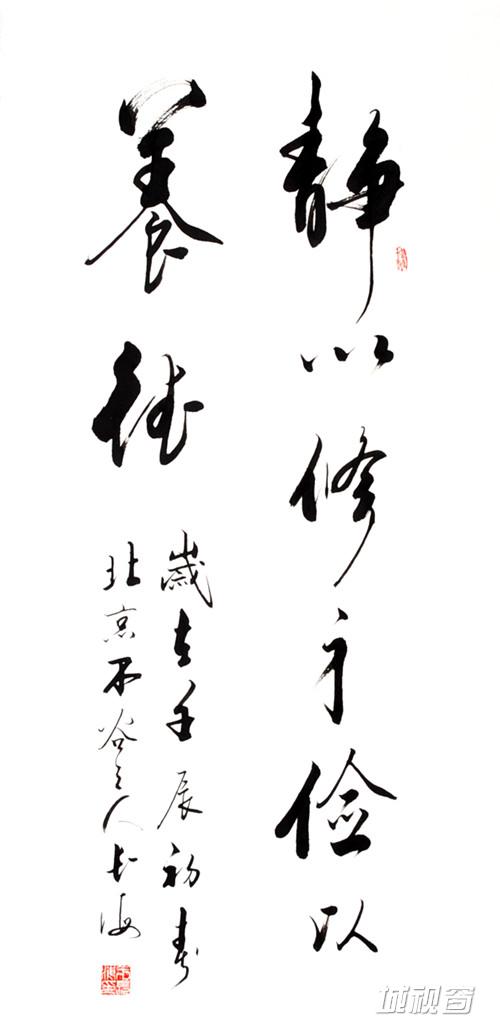 静以修身俭以
養德
歲在壬辰初春
北京不谷之人长海
城视窗